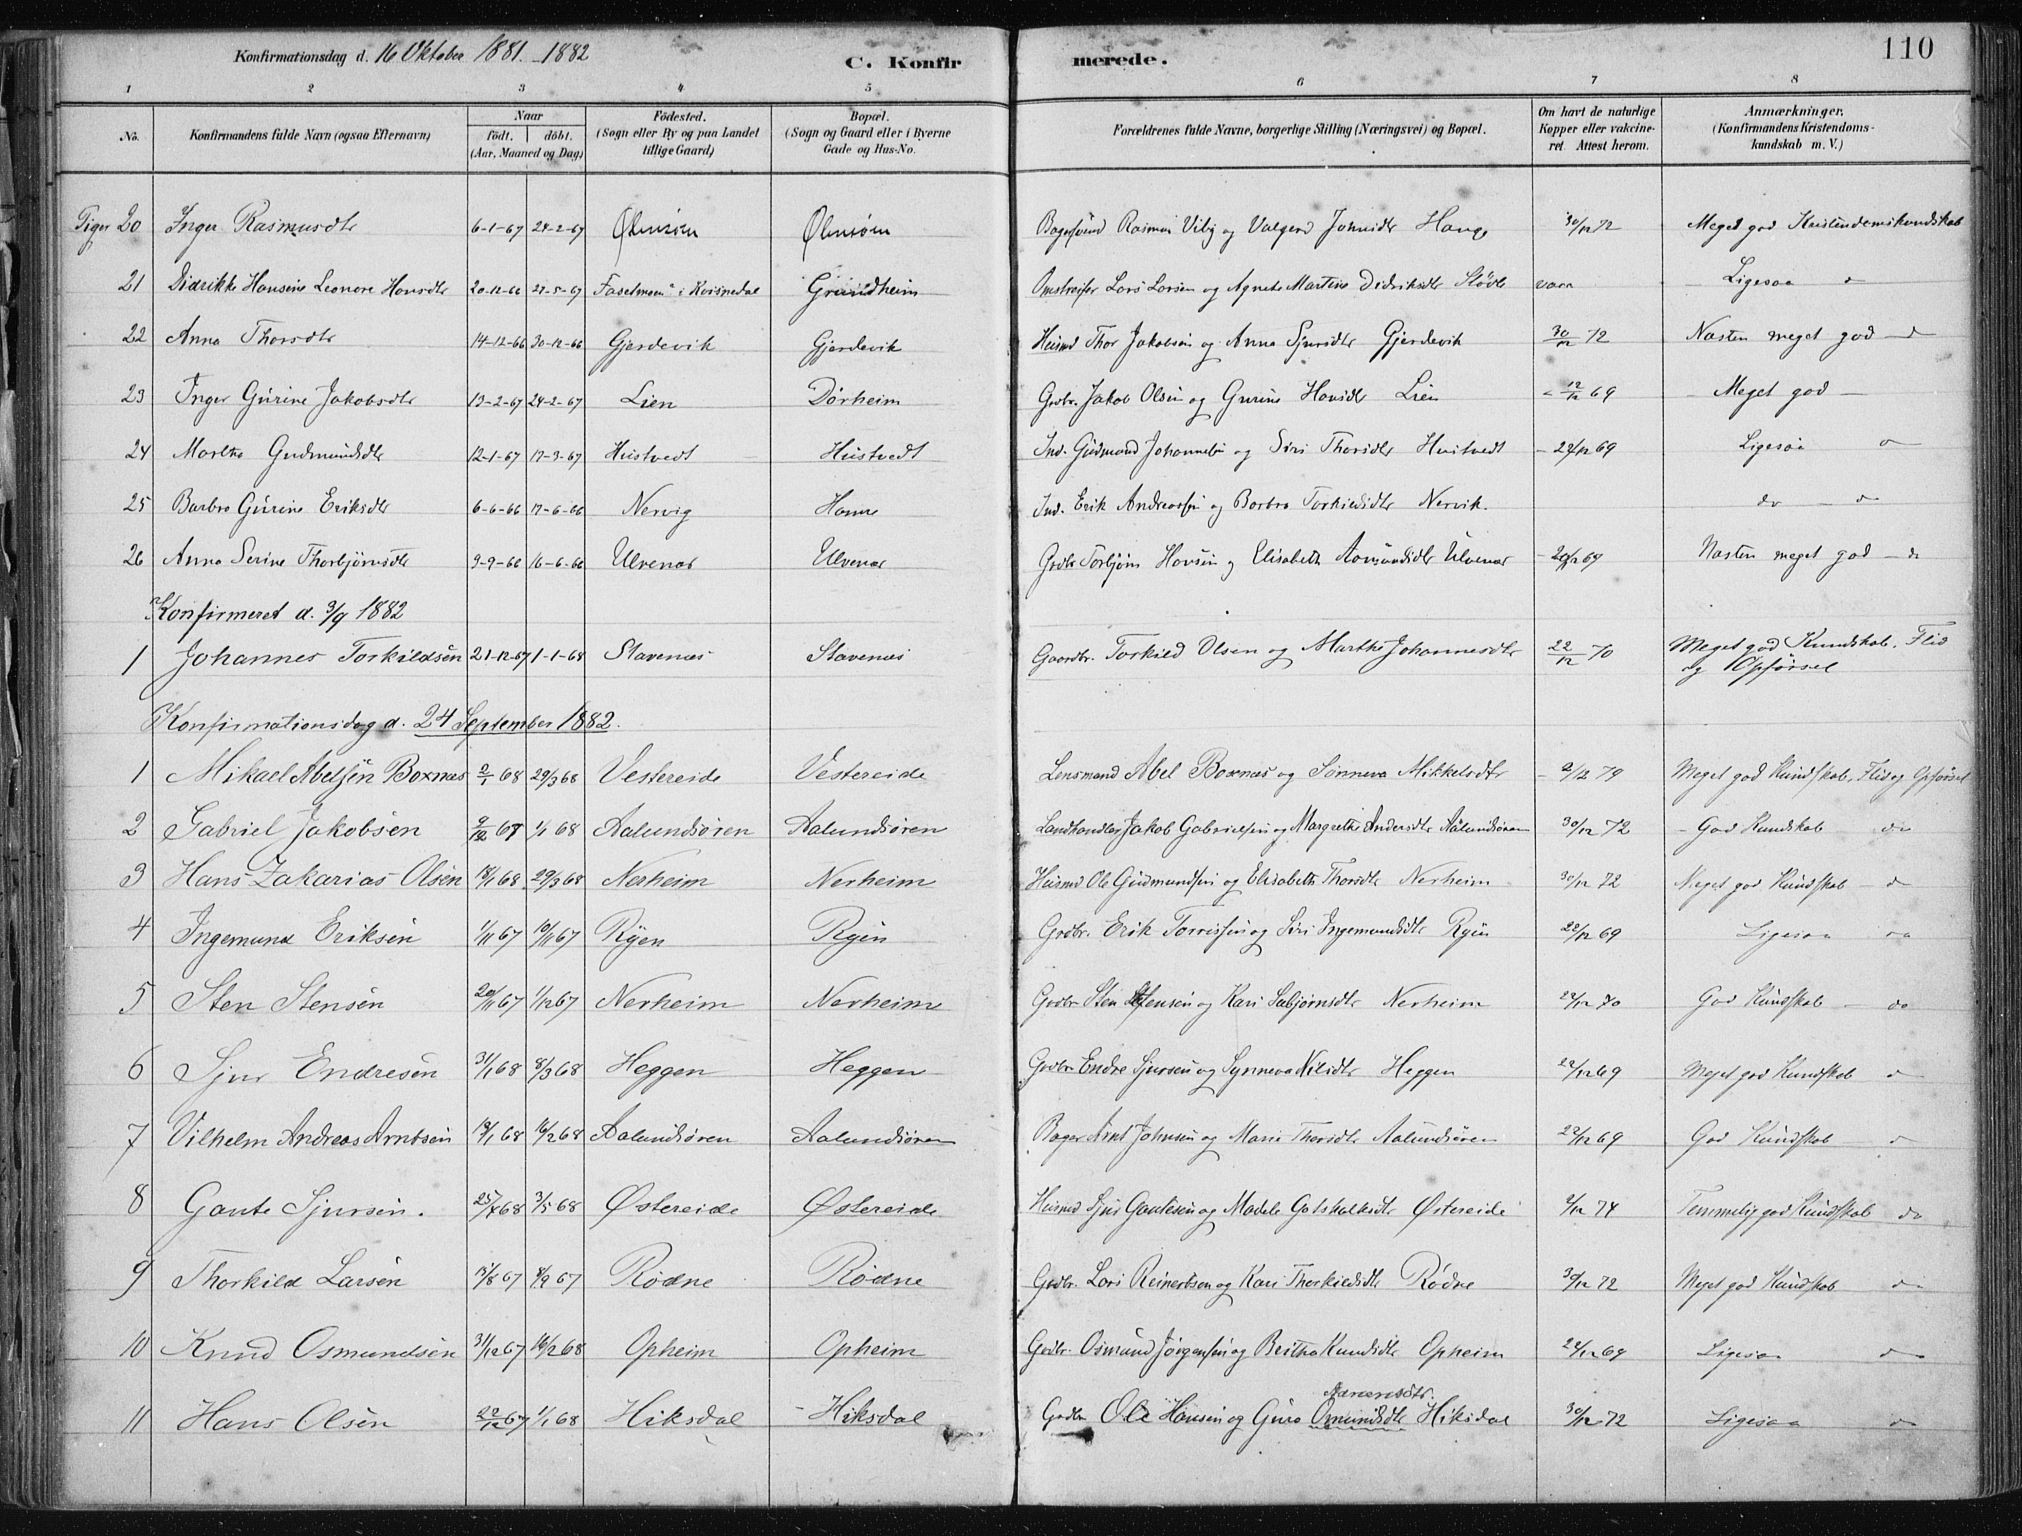 Konfirmationsdag d. 16 Oktober 1881. - 1882
C. Konfir merede.
110
1 2 3 4 5 6 7 8
No. Konfirmandens fulde Navn (ogsaa Efternavn) Naar født. døbt. (Aar, Maaned og Dag) Fødested. (Sogn eller By og paa Landet tillige Gaard) Bopæl. (Sogn og Gaard eller i Byerne Gade og Hus-No. Forældrenes fulde Navne, borgerlige Stilling (Næringsvei) og Bopæl. Om havt de naturlige Kopper eller vakcineret. Attest herom. Anmærkninger. (Konfirmandens Kristendomskundskab m. V.)
Piger 20 Inger Rasmusdtr 6-1-67 24-2-67 Ølensøen Ølensøen Rasmus Viby og Valgerd Johnsdtr Hauge 30/12 72 Meget god Kristendomskundskab
21 Didrikke Hansine Leonore Hansdtr 20-12-66 27-5-67 Grindheim Lars Larsen og Agnete Martine Didriksdtr vacc Ligesaa d
22 Anna Thorsdtr 14-12-66 30-12-66 Gjerdevik Gjerdevik Husmd Thor Jakobsen og Anna Sjursdtr Gjerdevik 30/12 72 Næsten meget god - d
23 Inger Gurine Jakobsdtr 13-2-67 24-2-67 Lien Dørheim Grdbr. Jakob Olsen og Gurine Hansdtr Lien 12/12 69 - Meget god -
24 Martha Gudmundsdtr 12-1-67 17-3-67 Hustvedt Hustvedt Ind. Gudmund Johannesen og Siri Thorsdtr Hustvedt - 22/12 69 Ligesaa d
25 Barbro Gurine Eriksdtr 6-6-66 17-6-66 Nervig Hamre Ind. Erik Andreassen og Barbro Torkildsdtr Nervik. do - d
26 Anna Serine Thorbjørnsdtr 9-9-66 16-6-66 Ulvenæs Ulvenæs Grdbr Torbjørn Hansen og Elisabeth Aamundsdtr Ulvenæs - 22/12 69 Næsten meget god - do
Konfirmeret d. 3/9 1882
1 Johannes Torkildsen 21-12-67 1-1-68 Stavenæs Stavenæs Gaardbr. Torkild Olsen og Marthe Johannesdtr 22/12 70 Meget god Kundskab, Flid og Opførsel
Konfirmationsdag d. 24 September 1882.
1 Mikael Abelsen Boxnæs 2/1 68 29/3 68 Vestereide Vestereide Lensmand Abel Boxnæs og Sønneva Mikkelsdtr - 2/12 79 Meget god Kundskab, Flid og Opførsel
2 Gabriel Jakobsen 9/12 67 1/1 68 Aalundsøren Aalundsøren Landhandler Jakob Gabrielsen og Margrethe Andersdtr Aalundsøren 30/12 72 - God Kundskab do
3 Hans Zakarias Olsen 18/1 68 29/3 68 Nerheim Nerheim Husmd Ole Gudmundsen og Elisabeth Thorsdtr Nerheim 30/12 72 Meget god Kundskab - d
4 Ingemund Eriksen 1/11 67 10/11 67 Ryen Ryen Grdbr. Erik Torrissen og Siri Ingemundsdtr Ryen 22/12 69 Ligesaa do
5 Sten Stensen 20/11 67 1/12 67 Nerheim Nerheim Grdbr Sten Stensen og Kari Sæbjørnsdtr Nerheim 22/12 70 God Kundskab do
6 Sjur Endresen 31/1 68 8/3 68 Heggen Heggen Grdbr Endre Sjursen og Synneva Nilsdtr Heggen 22/12 69 Meget god Kundskab d
7 Vilhelm Andreas Arntsen 19/1 68 16/2 68 Aalundsøren Aalundsøren Bager Arnt Johnsen og Marie Thorsdtr Aalundsøren 22/12 69 God Kundskab d
8 Gaute Sjursen. 25/4 68 3/5 68 Østereide Østereide Husmd Sjur Gautesen og Madele Gotskalksdtr Østereide 2/12 74 Temmelig god Kundskab do
9 Thorkild Larsen 15/8 67 8/9 67 Rødne Rødne Grdbr. Lars Reinertsen og Kari Thorkildsdtr Rødne 30/12 72 Meget god Kundskab do
10 Knud Osmundsen 31/12 67 16/2 68 Opheim Opheim Grdbr. Osmund Jørgensen og Bertha Knudsdtr Opheim 22/12 69 Ligesaa do
11 Hans Olsen 22/12 67 1/1 68 Hiksdal - Hiksdal Grdbr Ole Hansen og Guro Omundsdtr Hiksdal 30/12 72 Ligesaa d